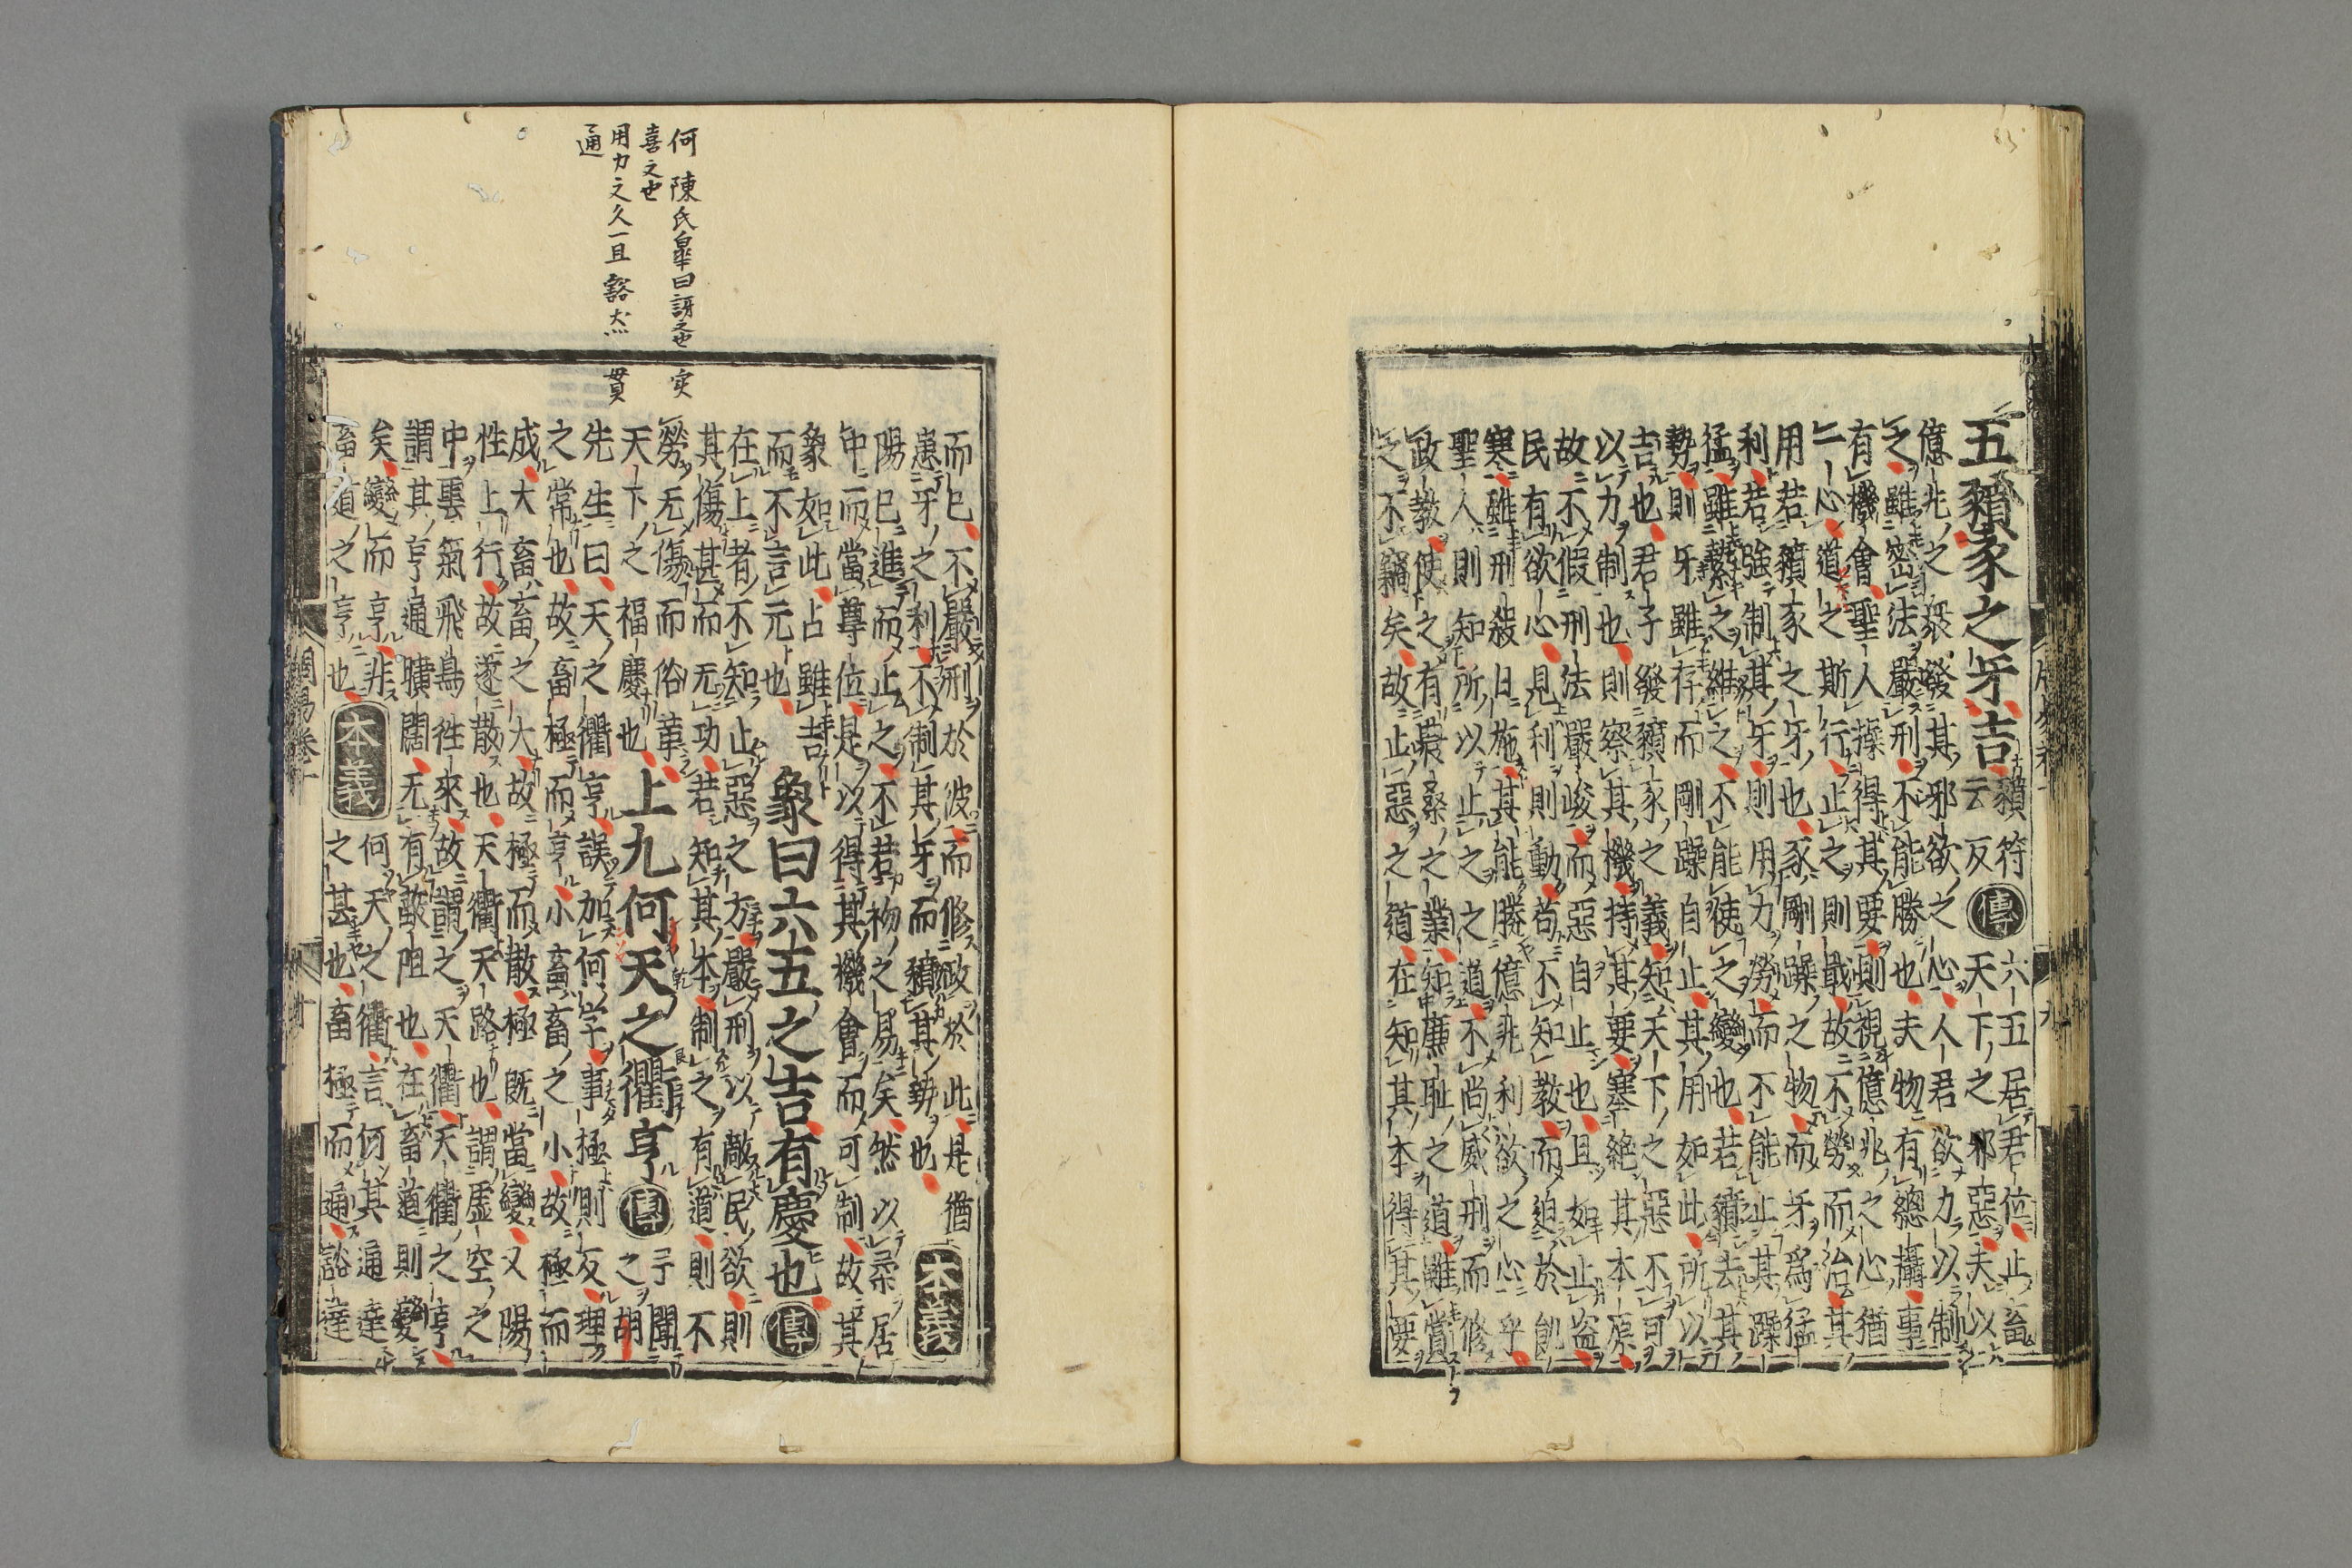 五豶豕之牙吉
豶符
云反
傳
六五居君位止畜
天下之邪惡夫以
億兆之衆發其邪欲之心人君欲力以制
之雖密法嚴刑不能勝也夫物有總攝事
有機會聖人操得其要則視億兆之心猶
一心道之斯行止之則戢故不勞而治其
用若豶豕之牙也豕剛躁之物而牙爲猛
利若強制其牙則用力勞而不能止其躁
猛雖縶之維之不能使之變也若豶去其
勢則牙雖存而剛躁自止其用如此所以
吉也君子發豶豕之義知天下之惡不可
以力制也則察其機持其要塞絶其本原
故不假刑法嚴峻而惡自止也且如止盜
民有欲心見利則動苟不知教而迫於飢
寒雖刑殺日施其能勝億兆利欲之心乎
聖人則知所以止之之道不尚威刑而修
政教使之有農桑之業知廉耻之道雖賞
之不竊矣故止惡之道在知其本得其要
何 陳氏臯曰訝之也 実
喜之也
用力之久一旦豁然 貫
通
而已不嚴刑於彼而修政於此是猶
患牙之利不制其牙而豶其勢也
本義
陽已進而止之不若初之易矣然以柔居
中而當尊位是以得其機會而可制故其
象如此占雖吉
而不言元也
象曰六五之吉有慶也 傳
在上者不知止惡之方嚴刑以敵民欲則
其傷甚而无功若知其本制之有道則不
勞无傷而俗革
天下之福慶也
上九何天之衢亨 傳
予聞
之胡
先生曰天之衢亨誤加何字事極則反理
之常也故畜極而亨小畜畜之小故極而
成大畜畜之大故極而散極既當變又陽
性上行故遂散也天衢天路也謂虛空之
中雲氣飛鳥往來故謂之天衢天衢之亨
謂其亨通曠闊无有蔽阻也在畜道則變
矣變而亨非
畜道之亨也
本義
何天之衢言何其通達
之甚也畜極而通豁達
周易卷十